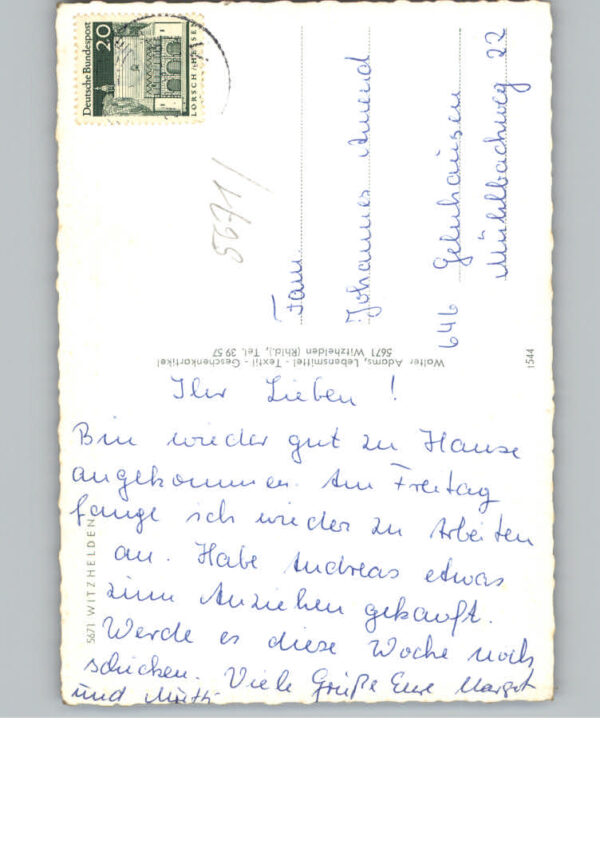 Deutsche Bundespost
20
LORSCH / HESSEN
5671/
Fam.
Johannes Amend
646 Gelnhausen
Mühlbachweg 22
Walter Adams, Lebensmittel - Textil - Geschenkartikel
5671 Witzhelden (Rhld.), Tel. 39 57
1544
5671 WITZHELDEN
Ihr Lieben!
Bin wieder gut zu Hause
angekommen. Am Freitag
fange ich wieder zu Arbeiten
an. Habe Andreas etwas
zum Anziehen gekauft.
Werde es diese Woche noch
schicken. Viele Grüße Eure Margot
und Mutti